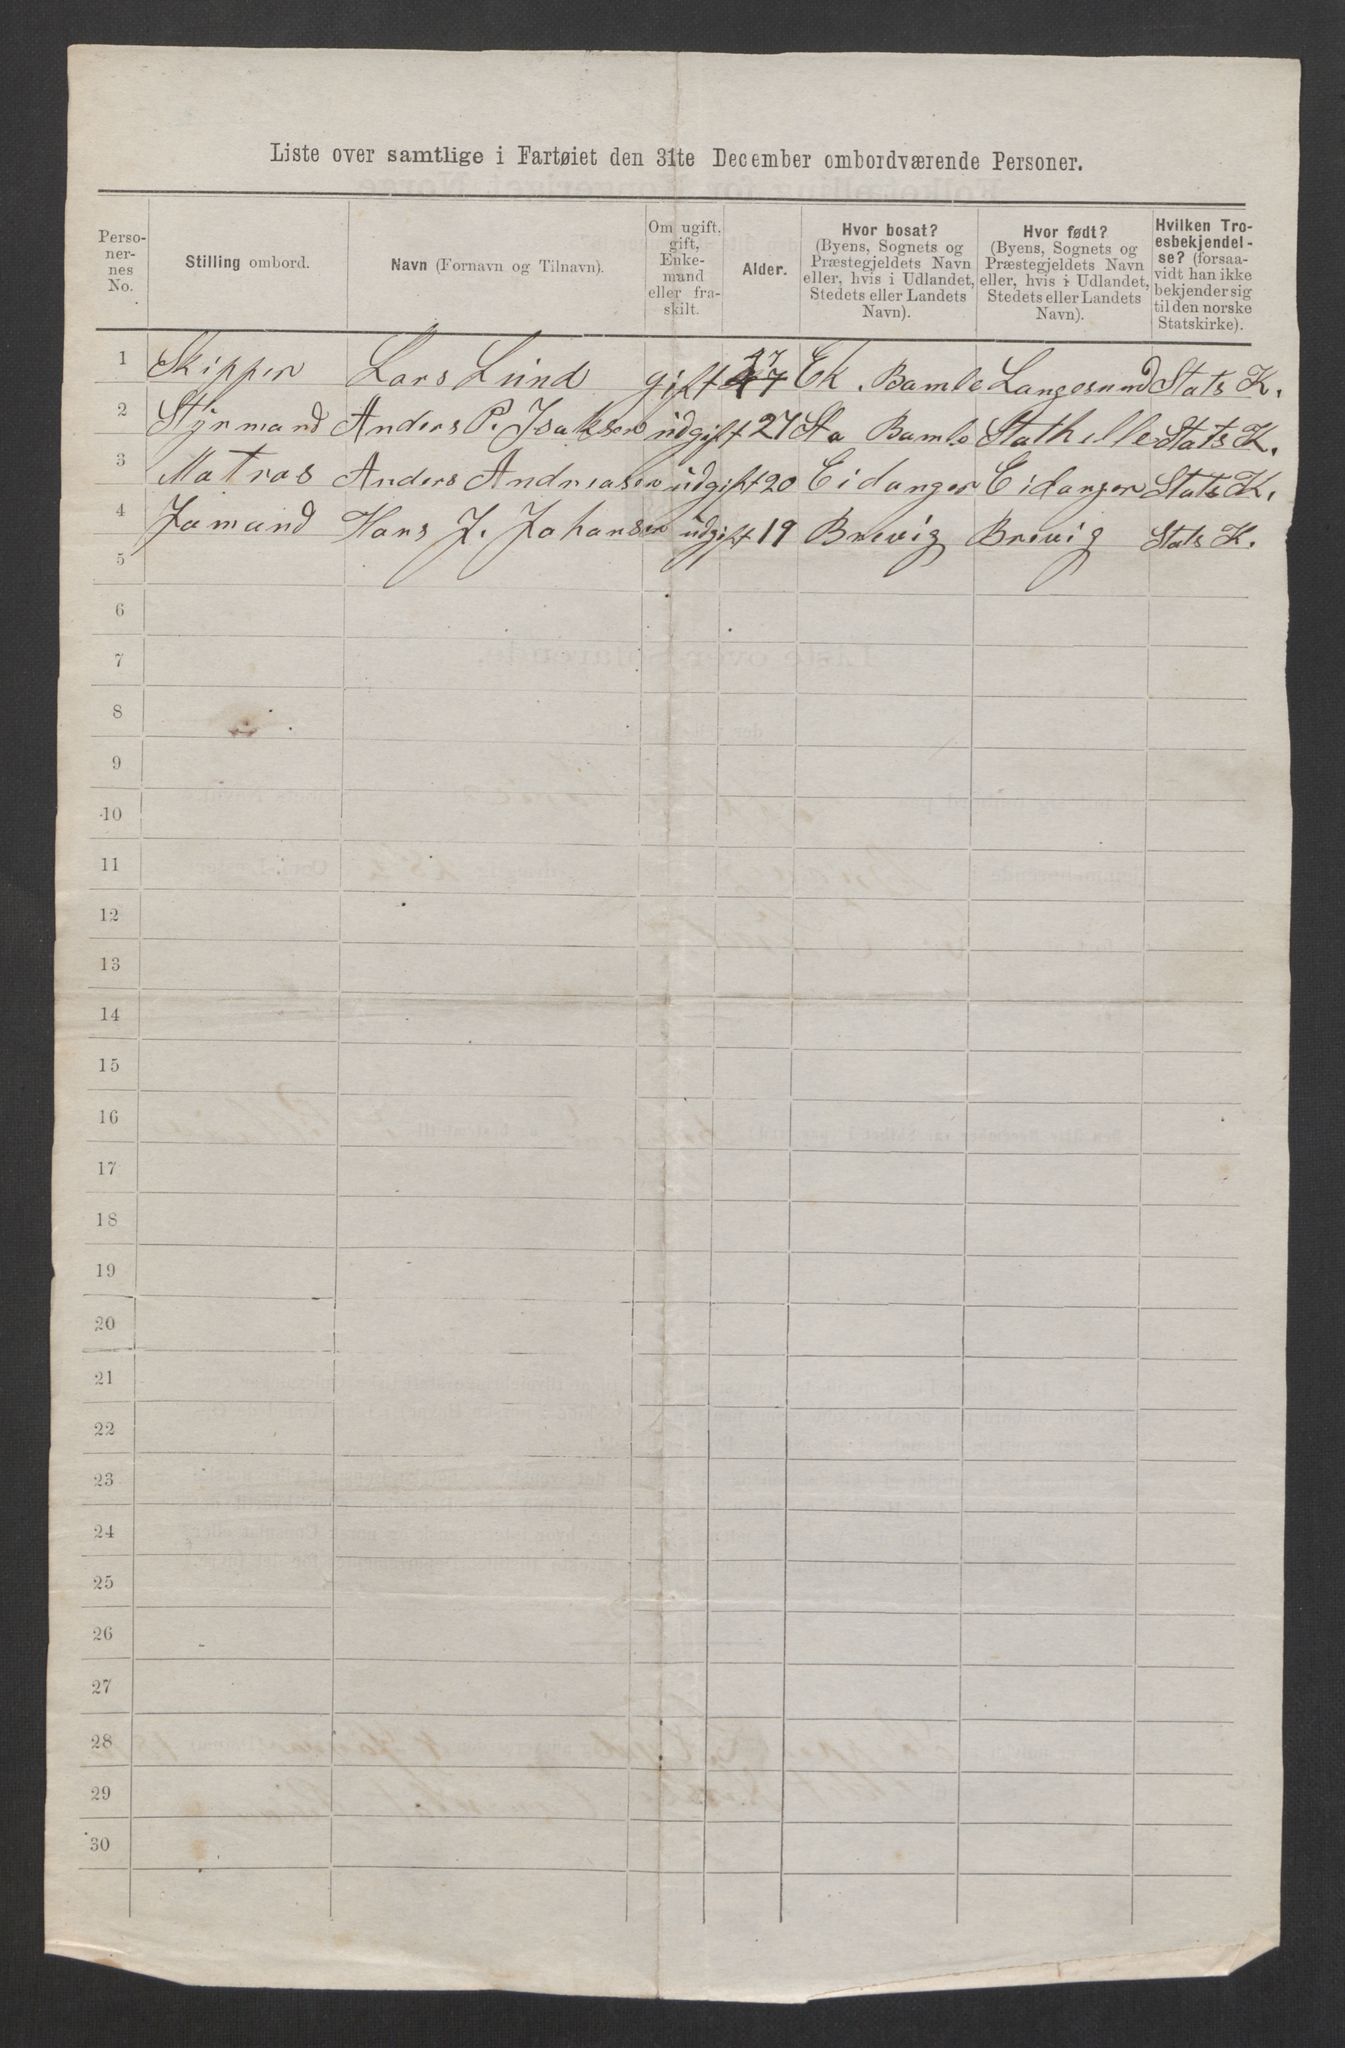 Liste over samtlige i Fartøiet den 31te December ombordværende Personer.
Perso-
ner-
nes
No.
Stilling ombord.
Navn (Fornavn og Tilnavn).
Om ugift,
gift,
Enke-
mand
eller fra-
skilt.
Alder.
Hvor bosat?
(Byens, Sognets og
Præstegjeldets Navn
eller, hvis i Udlandet,
Stedets eller Landets
Navn).
Hvor født?
(Byens, Sognets og
Præstegjeldets Navn
eller, hvis i Udlandet,
Stedets eller Landets
Navn).
Hvilken Tro-
esbekjendel-
se? (forsaa-
vidt han ikke
bekjender sig
til den norske
Statskirke).
1 Skipper Lars Lund gift 47 Ek. Bamle Langesund Stats K.
2 Styrmand Anders P. Isaksen udgift 27 Sta Bamle Stathelle Stats K.
3 Matros Anders Andreasen udgift 20 Eidanger Eidanger Stats K.
4 Jamand Hans J. Johansen udgift 19 Brevig Brevig Stats K.
5
6
7
8
9
10
11
12
13
14
15
16
17
18
19
20
21
22
23
24
25
26
27
28
29
30